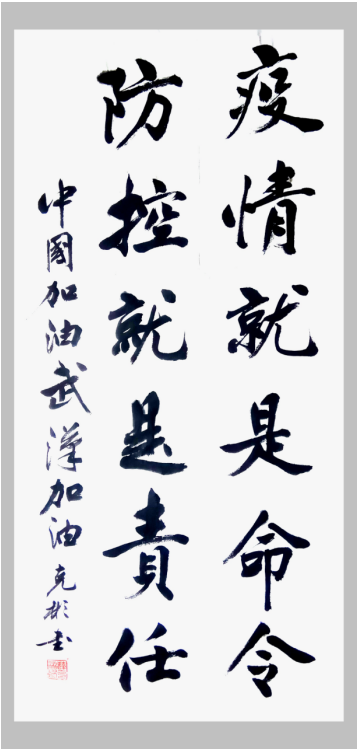 疫情就是命令
防控就是責任
中國加油武漢加油 克彬书